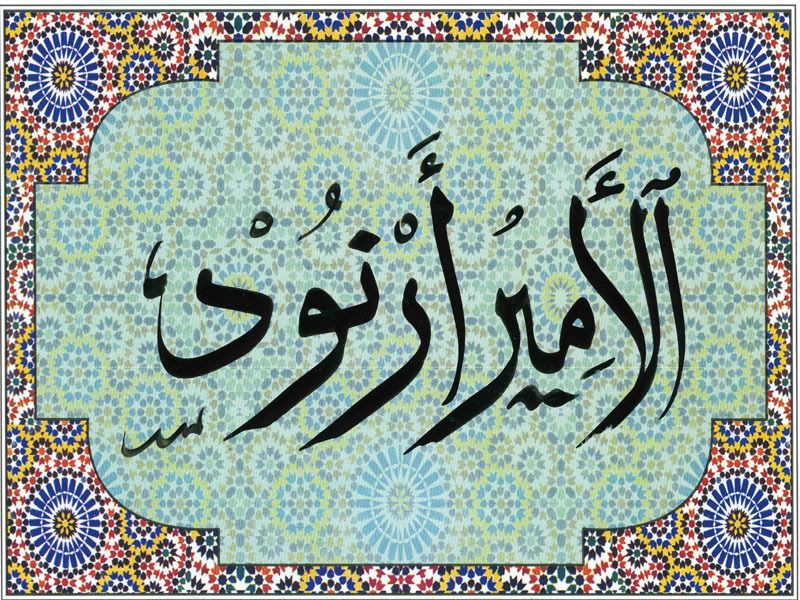 آلأَمِيرُ أَرْنُودْ